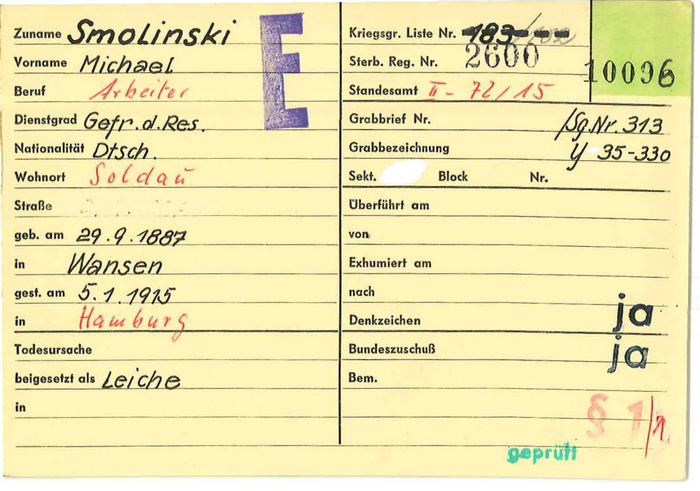 Zuname Smolinski
Vorname Michael
Beruf Arbeiter
Dienstgrad Gefr. d. Res.
Nationalität Dtsch.
Wohnort Soldau
Straße
geb. am 29.9.1887
in Wansen
gest. am 5.1.1915
in Hamburg
Todesursache
beigesetzt als Leiche
in
E
Kriegsgr. Liste Nr. 183
Sterb. Reg. Nr. 2600
Standesamt II - 72/15
10096
Grabbrief Nr. /Sg. Nr. 313
Grabbezeichnung Y 35-330
Sekt. Block Nr.
Überführt am
von
Exhumiert am
nach
Denkzeichen ja
Bundeszuschuß ja
Bem.
§ 1/1
geprüft